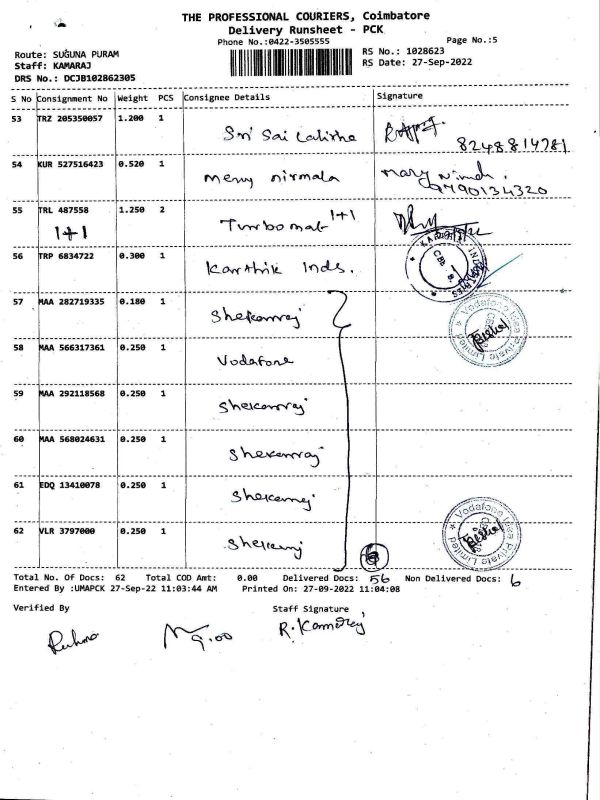 THE PROFESSIONAL COURIERS, Coimbatore
Delivery Runsheet - PCK
Phone No.:0422-3505555
Page No.:5
Route: SUGUNA PURAM
RS No.: 1028623
Staff: KAMARAJ
RS Date: 27-Sep-2022
DRS No.: DCJB102862305
S No Consignment No Weight PCS Consignee Details Signature
53 TRZ 205350057 1.200 1 Sri Sai Lalitha
8248814781
54 KUR 527516423 0.520 1 merry nirmala mary
9790134320
55 TRL 487558 1.250 2 Turbomat 1+1
1+1
56 TRP 6834722 0.300 1 Karthik Inds.
57 MAA 282719335 0.180 1 Shekamraj
Vodafone Idea Private Limited
58 MAA 566317361 0.250 1 Vodafone
59 MAA 292118568 0.250 1 Shekamraj
60 MAA 568024631 0.250 1 Shekamraj
61 EDQ 13410078 0.250 1
62 VLR 3797000 0.250 1
6
Vodafone Idea Private Limited
Total No. Of Docs: 62 Total COD Amt: 0.00 Delivered Docs: 56 Non Delivered Docs: 6
Entered By :UMAPCK 27-Sep-22 11:03:44 AM Printed On: 27-09-2022 11:04:08
Verified By Staff Signature
9.00 R. Kamaraj